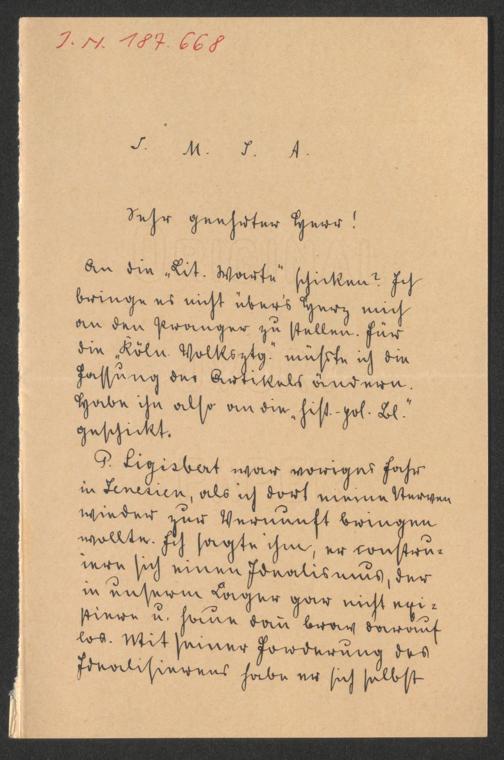 J. N. 187.668
J. M. J. A.
Sehr geehrter Herr!
An die „Lit. Warte" schicken? Ich
bringe es nicht über's Herz mich
an den Pranger zu stellen. Für
die „Köln. Volksztg." müsste ich die
Fassung des Artikels ändern.
Habe ihn also an die „hist.-pol. Bl."
geschickt.
P. Ligisbert war voriges Jahr
in Tenesien, als ich dort meine Nerven
wieder zur Vernunft bringen
wollte. Ich sagte ihm, er constru-
iere sich einen Idealismus, der
in unserm Lager gar nicht exi-
stiere u. haue dan̄ brav darauf
los. Mit seiner Forderung des
Idealisierens habe er sich selbst